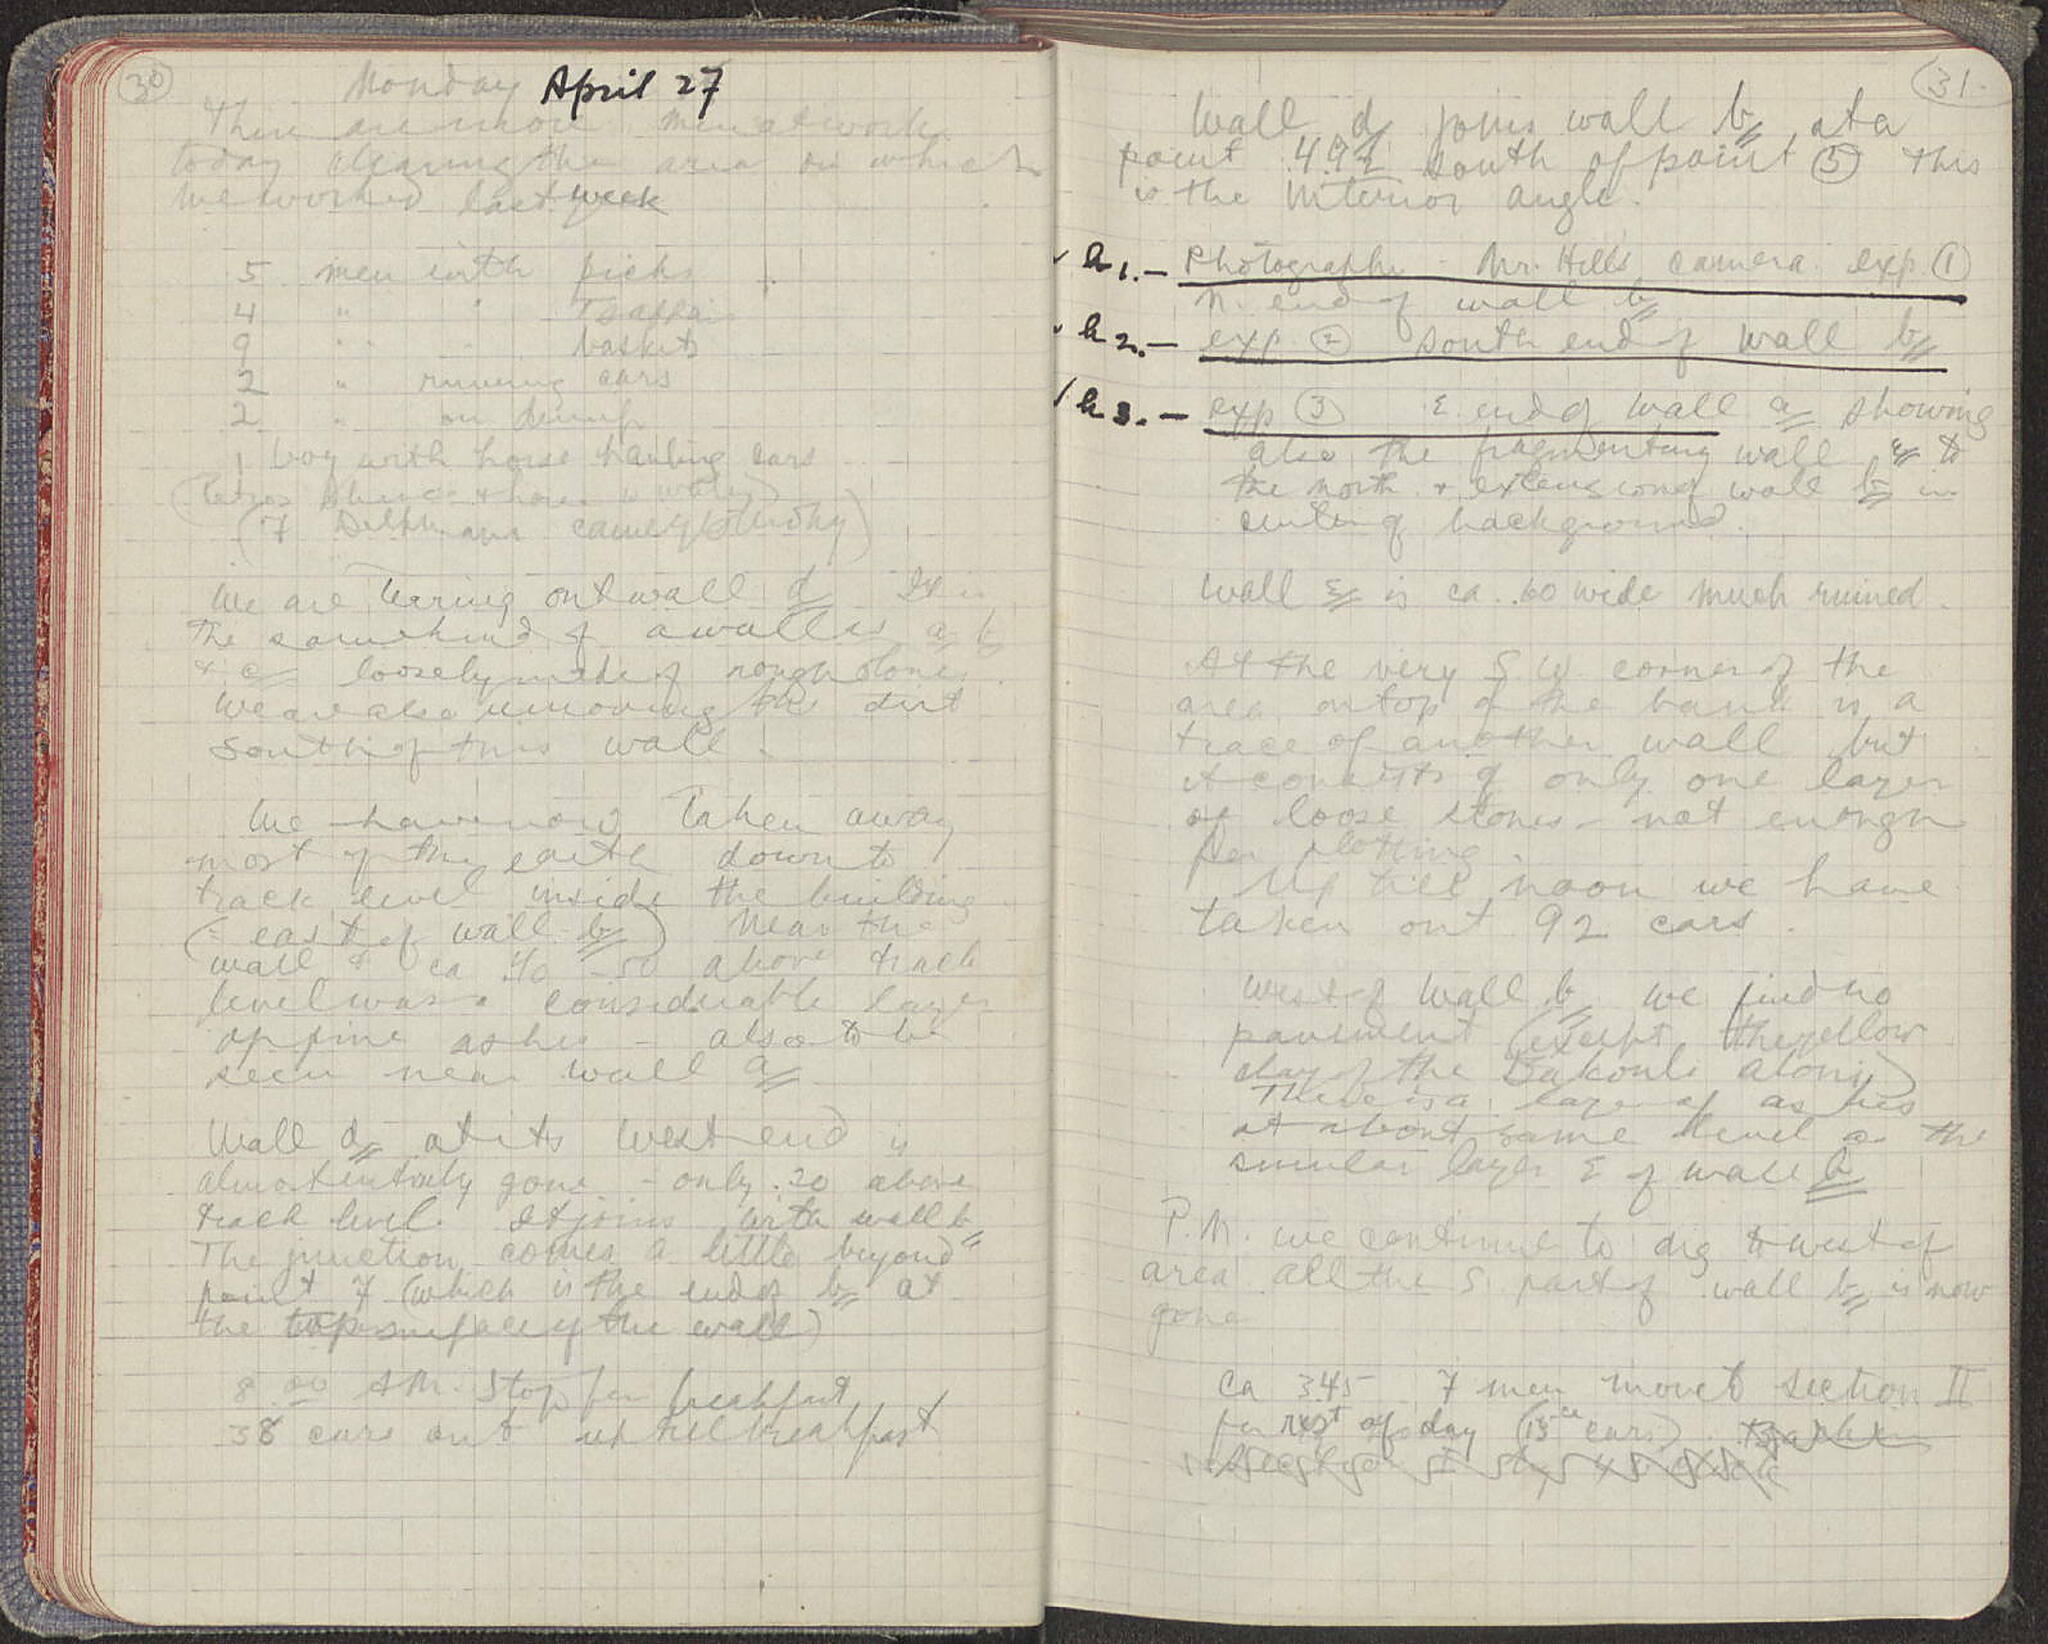 30
Monday April 27
There are more men at work
today clearing the area on which
we worked last week
5 men with picks
4 " " Tsappai
9 " " baskets
2 " running cars
2 " on dump
1 boy with horse hauling cars
(7 Delphians came yesterday)
We are tearing out wall d It is
the same kind of a wall as a b
& c loosely made of rough stones.
We are also removing the dirt
south of this wall.
We have now taken away
most of the earth down to
track level inside the building
(= east of wall b) Near the
wall & ca .40 - .50 above track
level was a considerable layer
of fine ashes - also to be
seen near wall a
Wall d at its west end is
almost entirely gone - only .20 above
track level. It joins with wall b
The junction comes a little beyond
point 7 (which is the end of b at
the top surface of the wall)
8.00 A.M. Stop for breakfast
38 cars out up till breakfast
31.
Wall d joins wall b at a
point 4.92 south of point (5) This
is the interior angle.
h1.- Photographs - Mr. Hill's camera exp. (1)
N. end of wall b
h2.- exp. (2) south end of wall b
h3.- exp (3) E. end of wall a showing
also the fragmentary wall ε to
the north & extension of wall b in
center of background.
Wall ε is ca. .60 wide much ruined.
At the very S.W. corner of the
area on top of the bank is a
trace of another wall but
it consists of only one layer
of loose stones - not enough
for plotting.
Up till noon we have
taken out 92 cars.
West of wall b we find no
pavement (except the yellow
clay of the Bakouli along)
There is a layer of ashes
at about same level as the
similar layer E of wall b
P.M. we continue to dig to west of
area all the S. part of wall b is now
gone
Ca 3.45 7 men move to section II
for rest of day (13 cars).